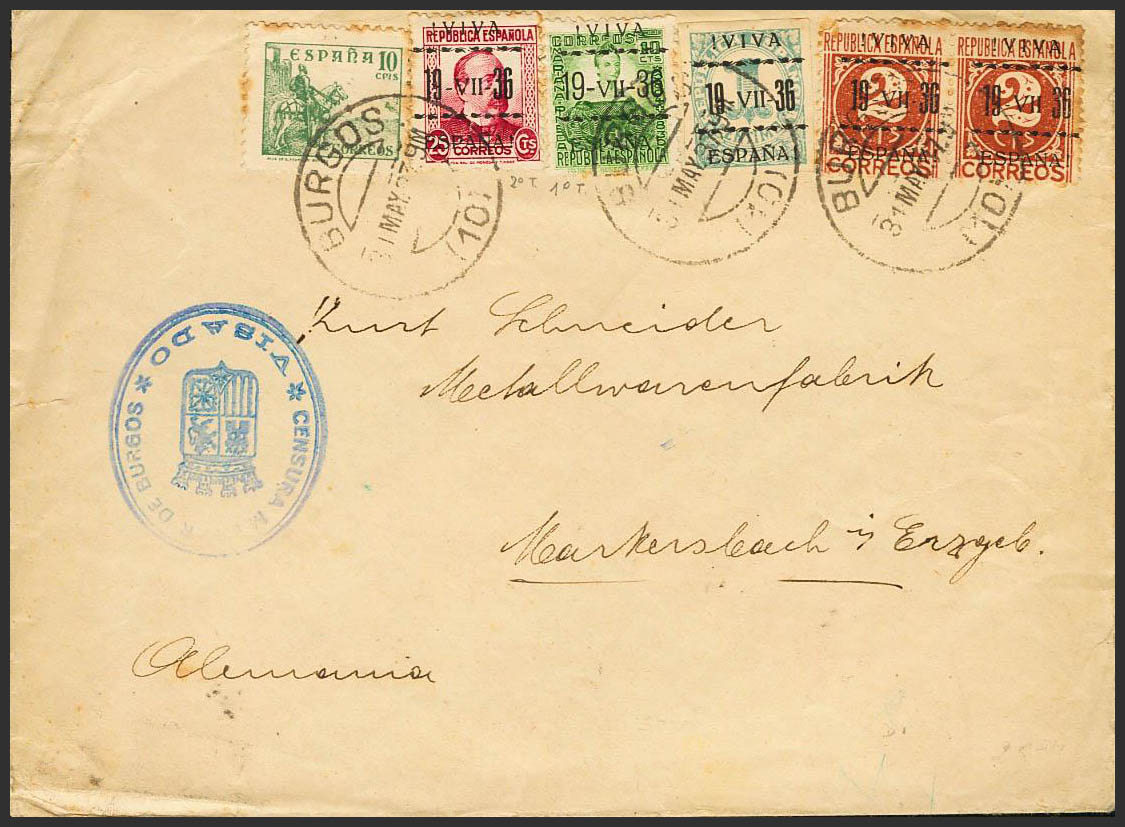 ESPAÑA 10
CTS
CORREOS
REPUBLICA ESPAÑOLA
¡VIVA
19-VII-36
ESPAÑA!
25 CTS
CORREOS
CORREOS
10
CTS
¡VIVA
19-VII-36
ESPAÑA!
REPUBLICA ESPAÑOLA
¡VIVA
19-VII-36
ESPAÑA!
REPUBLICA ESPAÑOLA
¡VIVA
2
19-VII-36
ESPAÑA!
CORREOS
REPUBLICA ESPAÑOLA
¡VIVA
2
19-VII-36
ESPAÑA!
CORREOS
BURGOS
31 MAY. 37
(10)
31 MAY. 37
(10)
31 MAY. 37
(10)
2º T. 1º T.
Kurt Schneider
Metallwarenfabrik
Markersbach i/ Erzgeb.
Alemania
VISADO
CENSURA
DE BURGOS